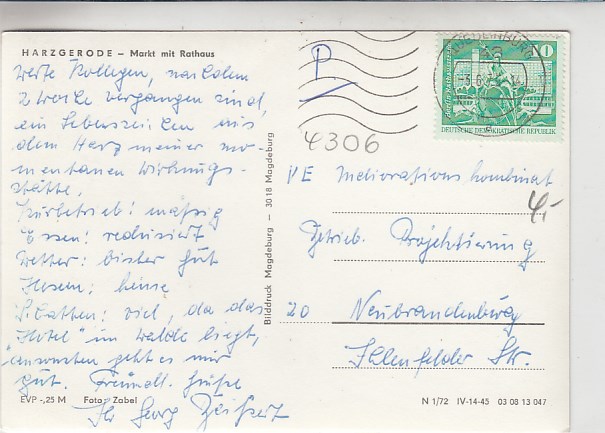 HARZGERODE – Markt mit Rathaus
Werte Kollegen, nachdem
2 Woche vergangen sind,
ein Lebenszeichen aus
dem Harz meiner mo-
mentanen Wirkungs-
stätte.
Kurbetrieb: mässig
Essen: reduziert
Wetter: bisher gut
Hexen: keine
Schatten: viel, da das
"Hotel" im Walde liegt,
ansonsten geht es mir
gut. Freundl. Grüße
Ihr Georg
EVP -,25 M Foto: Zabel
Bilddruck Magdeburg — 3018 Magdeburg
P
4306
10
DEUTSCHE DEMOKRATISCHE REPUBLIK
VE Meliorationskombinat
4,-
Betrieb Projektierung
20 Neubrandenburg
Ihlenfelder Str.
N 1/72 IV-14-45 03 08 13 047